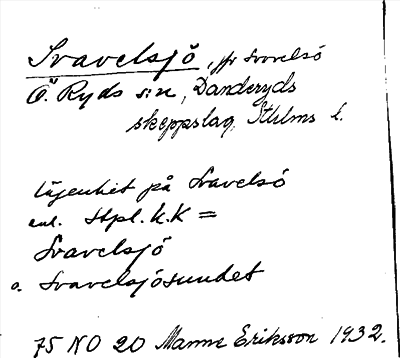 Svavelsjö, jfr Svavelsö
Ö. Ryds sn, Danderyds
skeppslag, Sthlms l.
lägenhet på Svavelsö
enl. Stpl. k. K =
Svavelsjö
o. Svavelsjösundet
75 NO 20 Manne Eriksson 1932.